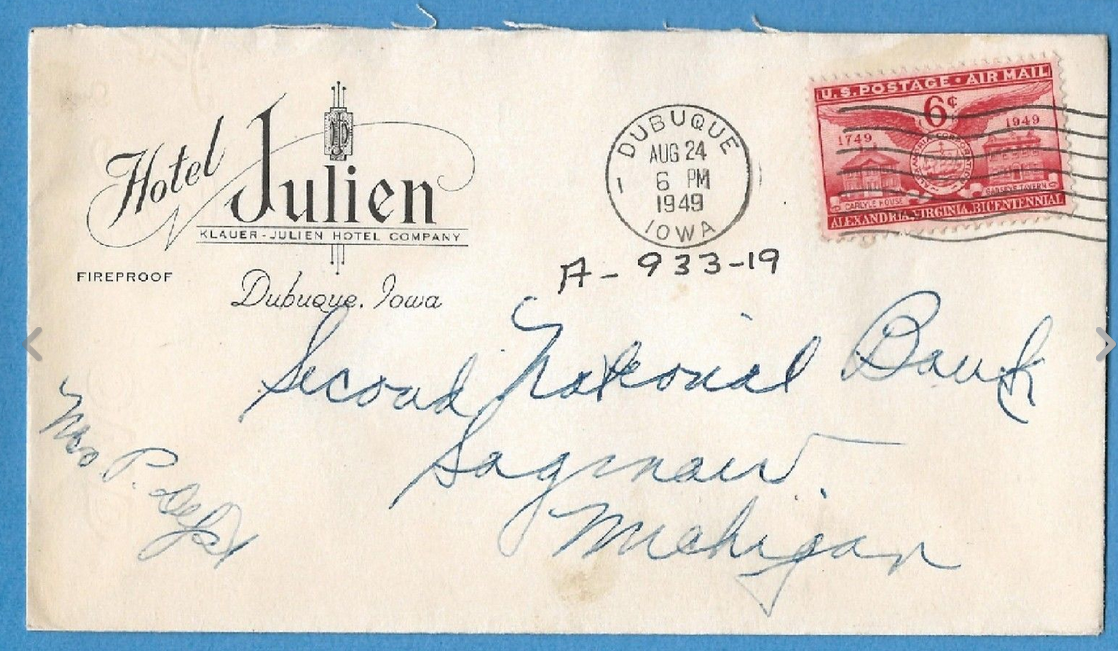 Hotel Julien
KLAUER-JULIEN HOTEL COMPANY
FIREPROOF
Dubuque, Iowa
DUBUQUE
AUG 24
6 PM
1949
IOWA
U.S. POSTAGE · AIR MAIL
6¢
1749
1949
CARLYLE HOUSE
GADSBY'S TAVERN
ALEXANDRIA, VIRGINIA, BICENTENNIAL
A-933-19
Second National Bank
Saginaw
Michigan
P. Dept